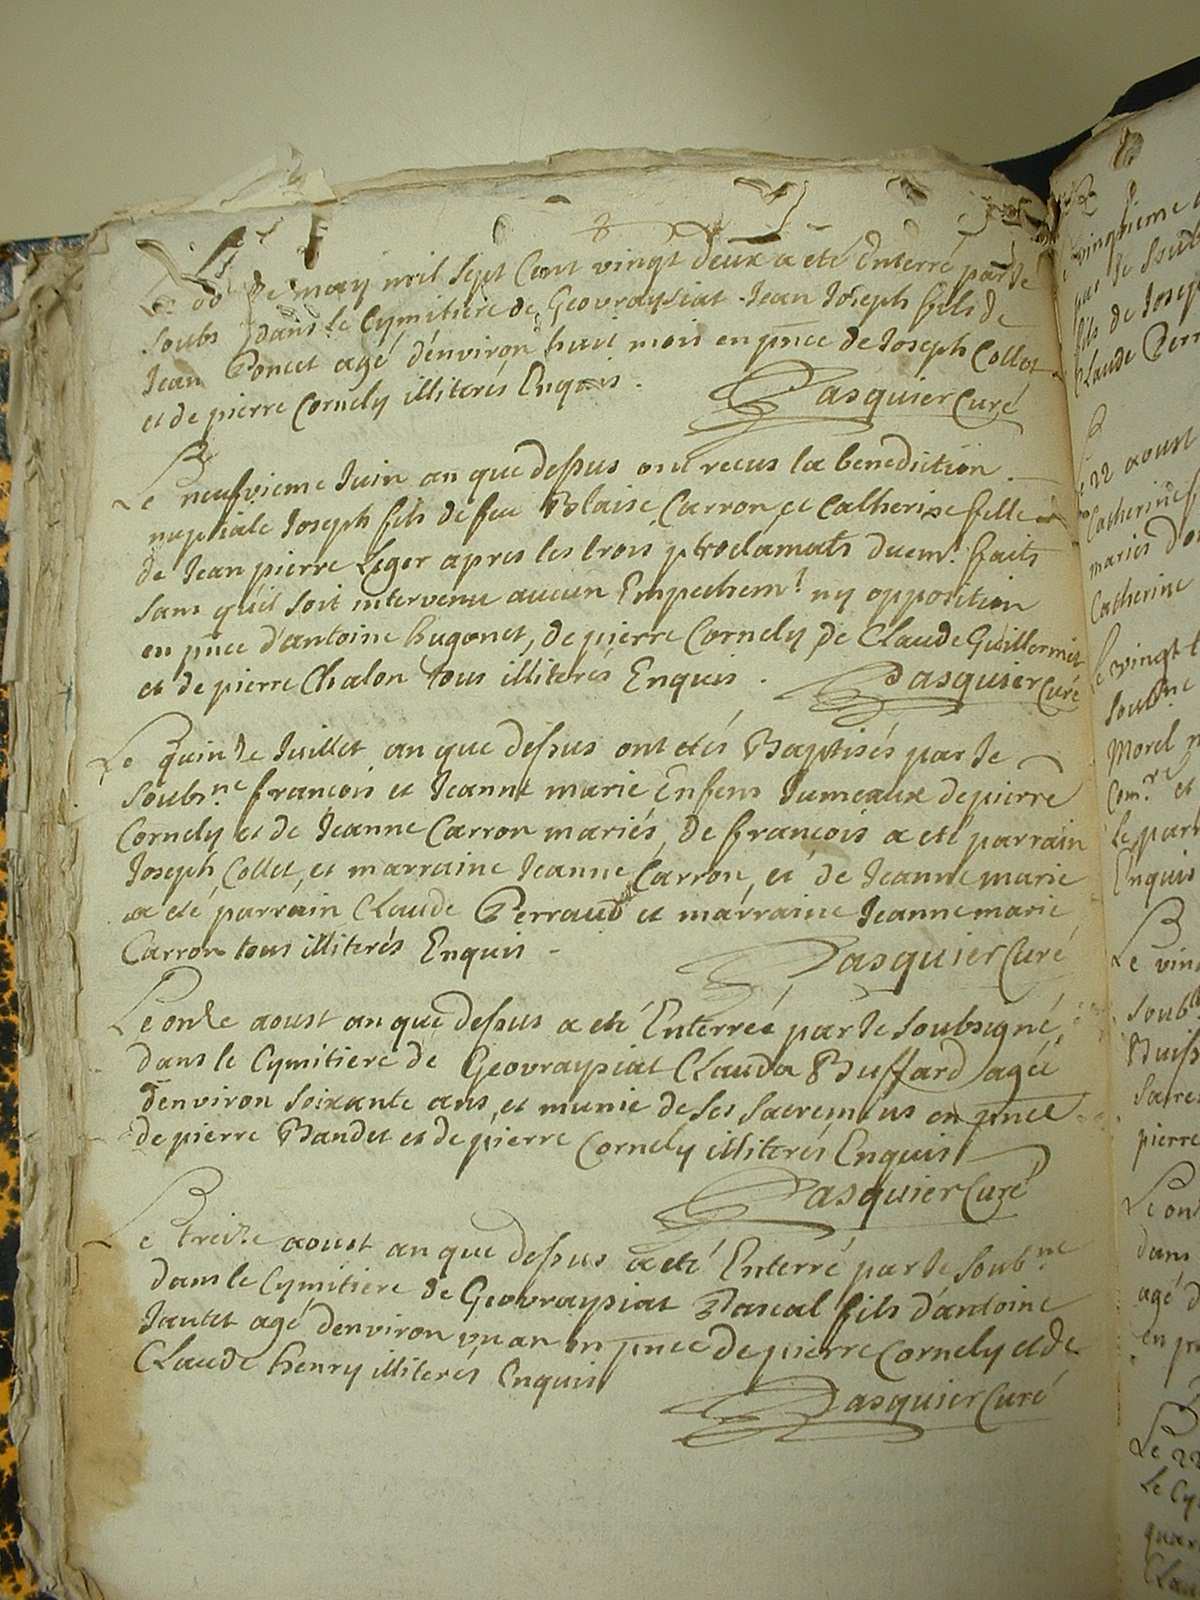 de may mil sept Cent vingt deux a eté Enterré par Je
soubs dans le Cymitiere de Geovraysiat Jean Joseph fils de
Jean Poncet agé d'environ huit mois en pnce de Joseph Collet
et de pierre Cornely illiterés Enquis.
Pasquier Curé
Le neufvieme Juin an que dessus ont recus la benediction
nuptiale Joseph fils de feu Blaise Carron et Catherine fille
de Jean pierre Leger apres les trois proclamats duemt faits
sans qu'il soit intervenu aucun Empechemt ny opposition
en pnce d'antoine hugonet, de pierre Cornely de Claude Guillermet
et de pierre Chalon tous illiterés Enquis.
Pasquier Curé
Le quinze Juillet an que dessus ont etés Baptisés par Je
soubs.ne francois et Jeanne marie Enfens Jumeaux de pierre
Cornely et de Jeanne Carron mariés, de francois a eté parrain
Joseph Collet, et marraine Jeanne Carron, et de Jeanne marie
a eté parrain Claude Perraud et marraine Jeanne marie
Carron tous illiterés Enquis -
Pasquier Curé
Le onze aoust an que dessus a eté Enterrée par Je soubsigné
dans le Cymitiere de Geovraysiat Clauda Buffard agée
d'environ soixante ans, et munie de ses sacremens en pnce
de pierre Bandet et de pierre Cornely illiterés Enquis
Pasquier Curé
Le treize aoust an que dessus a eté Enterré par Je soub.ne
dans le Cymitiere de Geovraysiat Pascal fils d'antoine
Jantet agé d'environ un an en pnce de pierre Cornely et de
Claude henry illiterés Enquis
Pasquier Curé
vingtieme
fils de Joseph
Claude Perr
Le 22 aoust
Catherine
mariés d'
Catherine
Le vingt
soubne
Morel
Com.re et
le parr
Enquis
Le vin
soub
Buiss
sacre
pierre
Le on
dans
agé d
en p
Le 22
Le Cy
quar
Cla